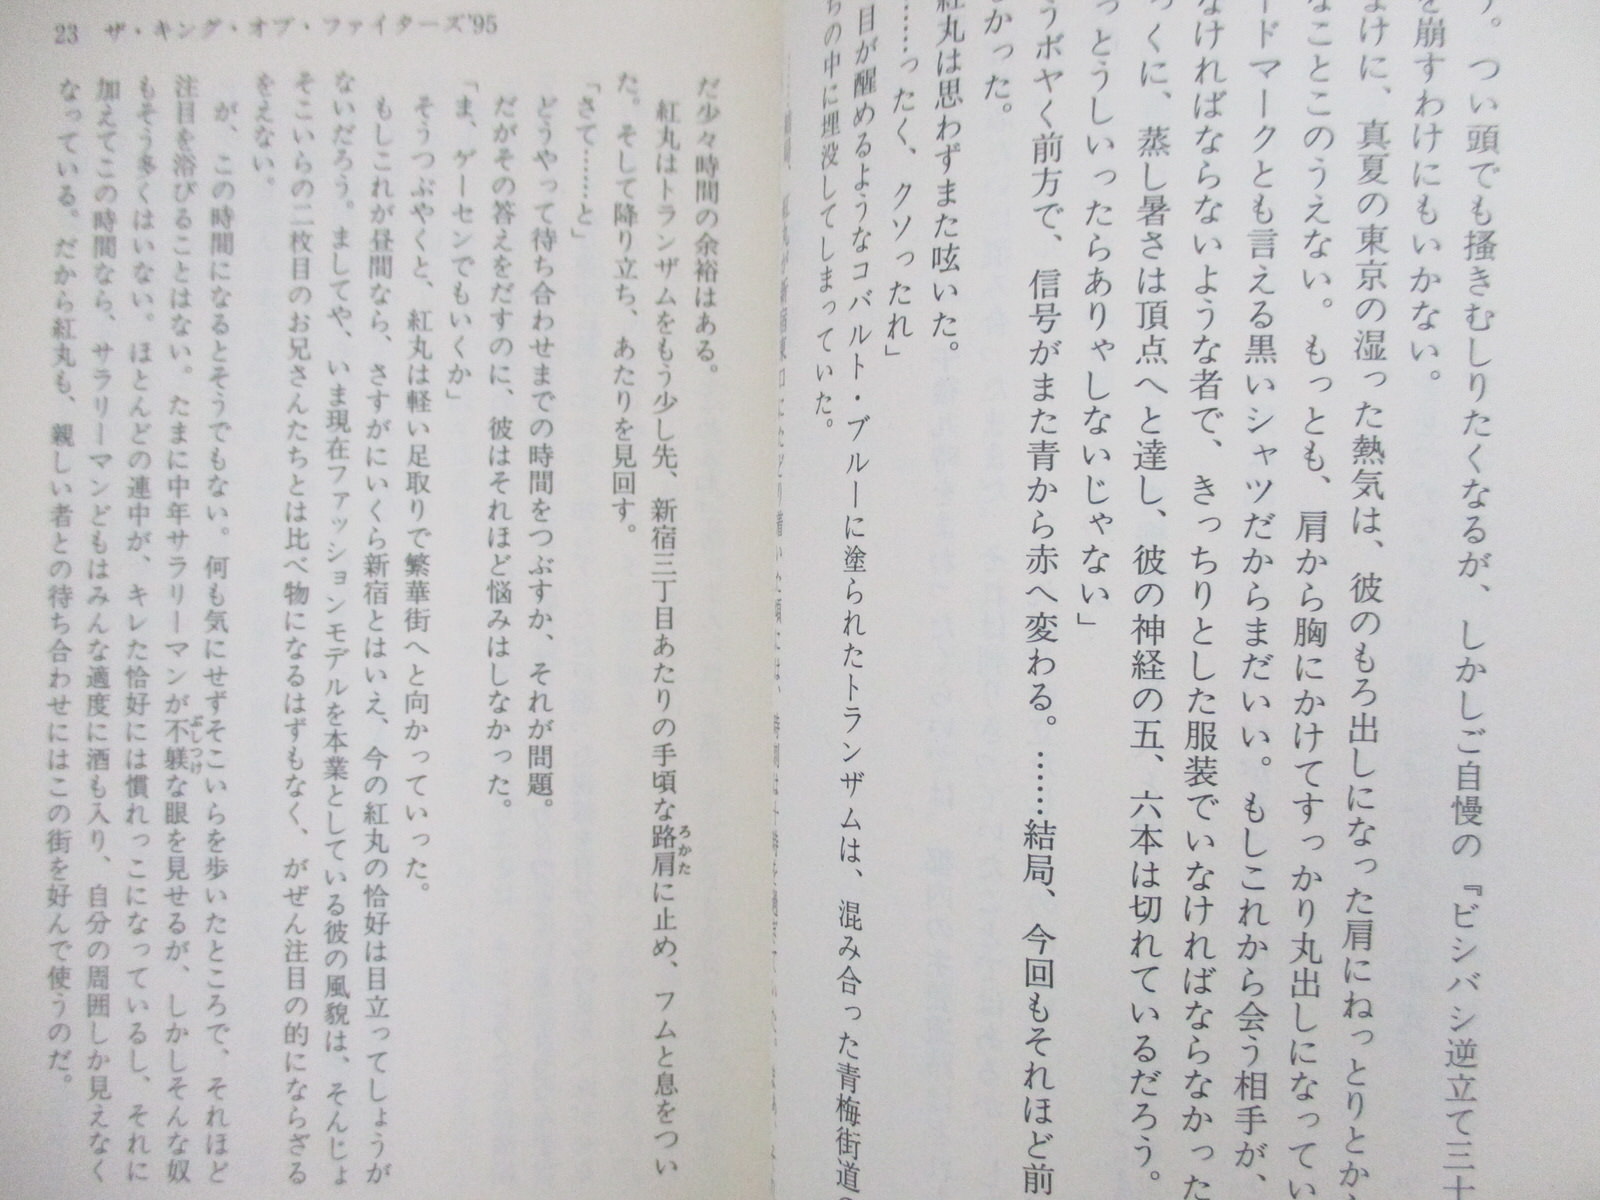 す。つい頭でも搔きむしりたくなるが、しかしご自慢の『ビシバシ逆立て三十
を崩すわけにもいかない。
まけに、真夏の東京の湿った熱気は、彼のもろ出しになった肩にねっとりとか
なことこのうえない。もっとも、肩から胸にかけてすっかり丸出しになってい
ードマークとも言える黒いシャツだからまだいい。もしこれから会う相手が、
なければならないような者で、きっちりとした服装でいなければならなかった
っくに、蒸し暑さは頂点へと達し、彼の神経の五、六本は切れているだろう。
っとうしいったらありゃしないじゃない」
うボヤく前方で、信号がまた青から赤へ変わる。……結局、今回もそれほど前
かった。
紅丸は思わずまた呟いた。
……ったく、クソったれ」
目が醒めるようなコバルト・ブルーに塗られたトランザムは、混み合った青梅街道の
ちの中に埋没してしまっていた。
23 ザ・キング・オブ・ファイターズ'95
だ少々時間の余裕はある。
紅丸はトランザムをもう少し先、新宿三丁目あたりの手頃な路肩に止め、フムと息をつい
ろかた
た。そして降り立ち、あたりを見回す。
「さて……と」
どうやって待ち合わせまでの時間をつぶすか、それが問題。
だがその答えをだすのに、彼はそれほど悩みはしなかった。
「ま、ゲーセンでもいくか」
そうつぶやくと、紅丸は軽い足取りで繁華街へと向かっていった。
もしこれが昼間なら、さすがにいくら新宿とはいえ、今の紅丸の恰好は目立ってしょうが
ないだろう。ましてや、いま現在ファッションモデルを本業としている彼の風貌は、そんじょ
そこいらの二枚目のお兄さんたちとは比べ物になるはずもなく、がぜん注目の的にならざる
をえない。
が、この時間になるとそうでもない。何も気にせずそこいらを歩いたところで、それほど
注目を浴びることはない。たまに中年サラリーマンが不躾な眼を見せるが、しかしそんな奴
ぶしつけ
もそう多くはいない。ほとんどの連中が、キレた恰好には慣れっこになっているし、それに
加えてこの時間なら、サラリーマンどもはみんな適度に酒も入り、自分の周囲しか見えなく
なっている。だから紅丸も、親しい者との待ち合わせにはこの街を好んで使うのだ。